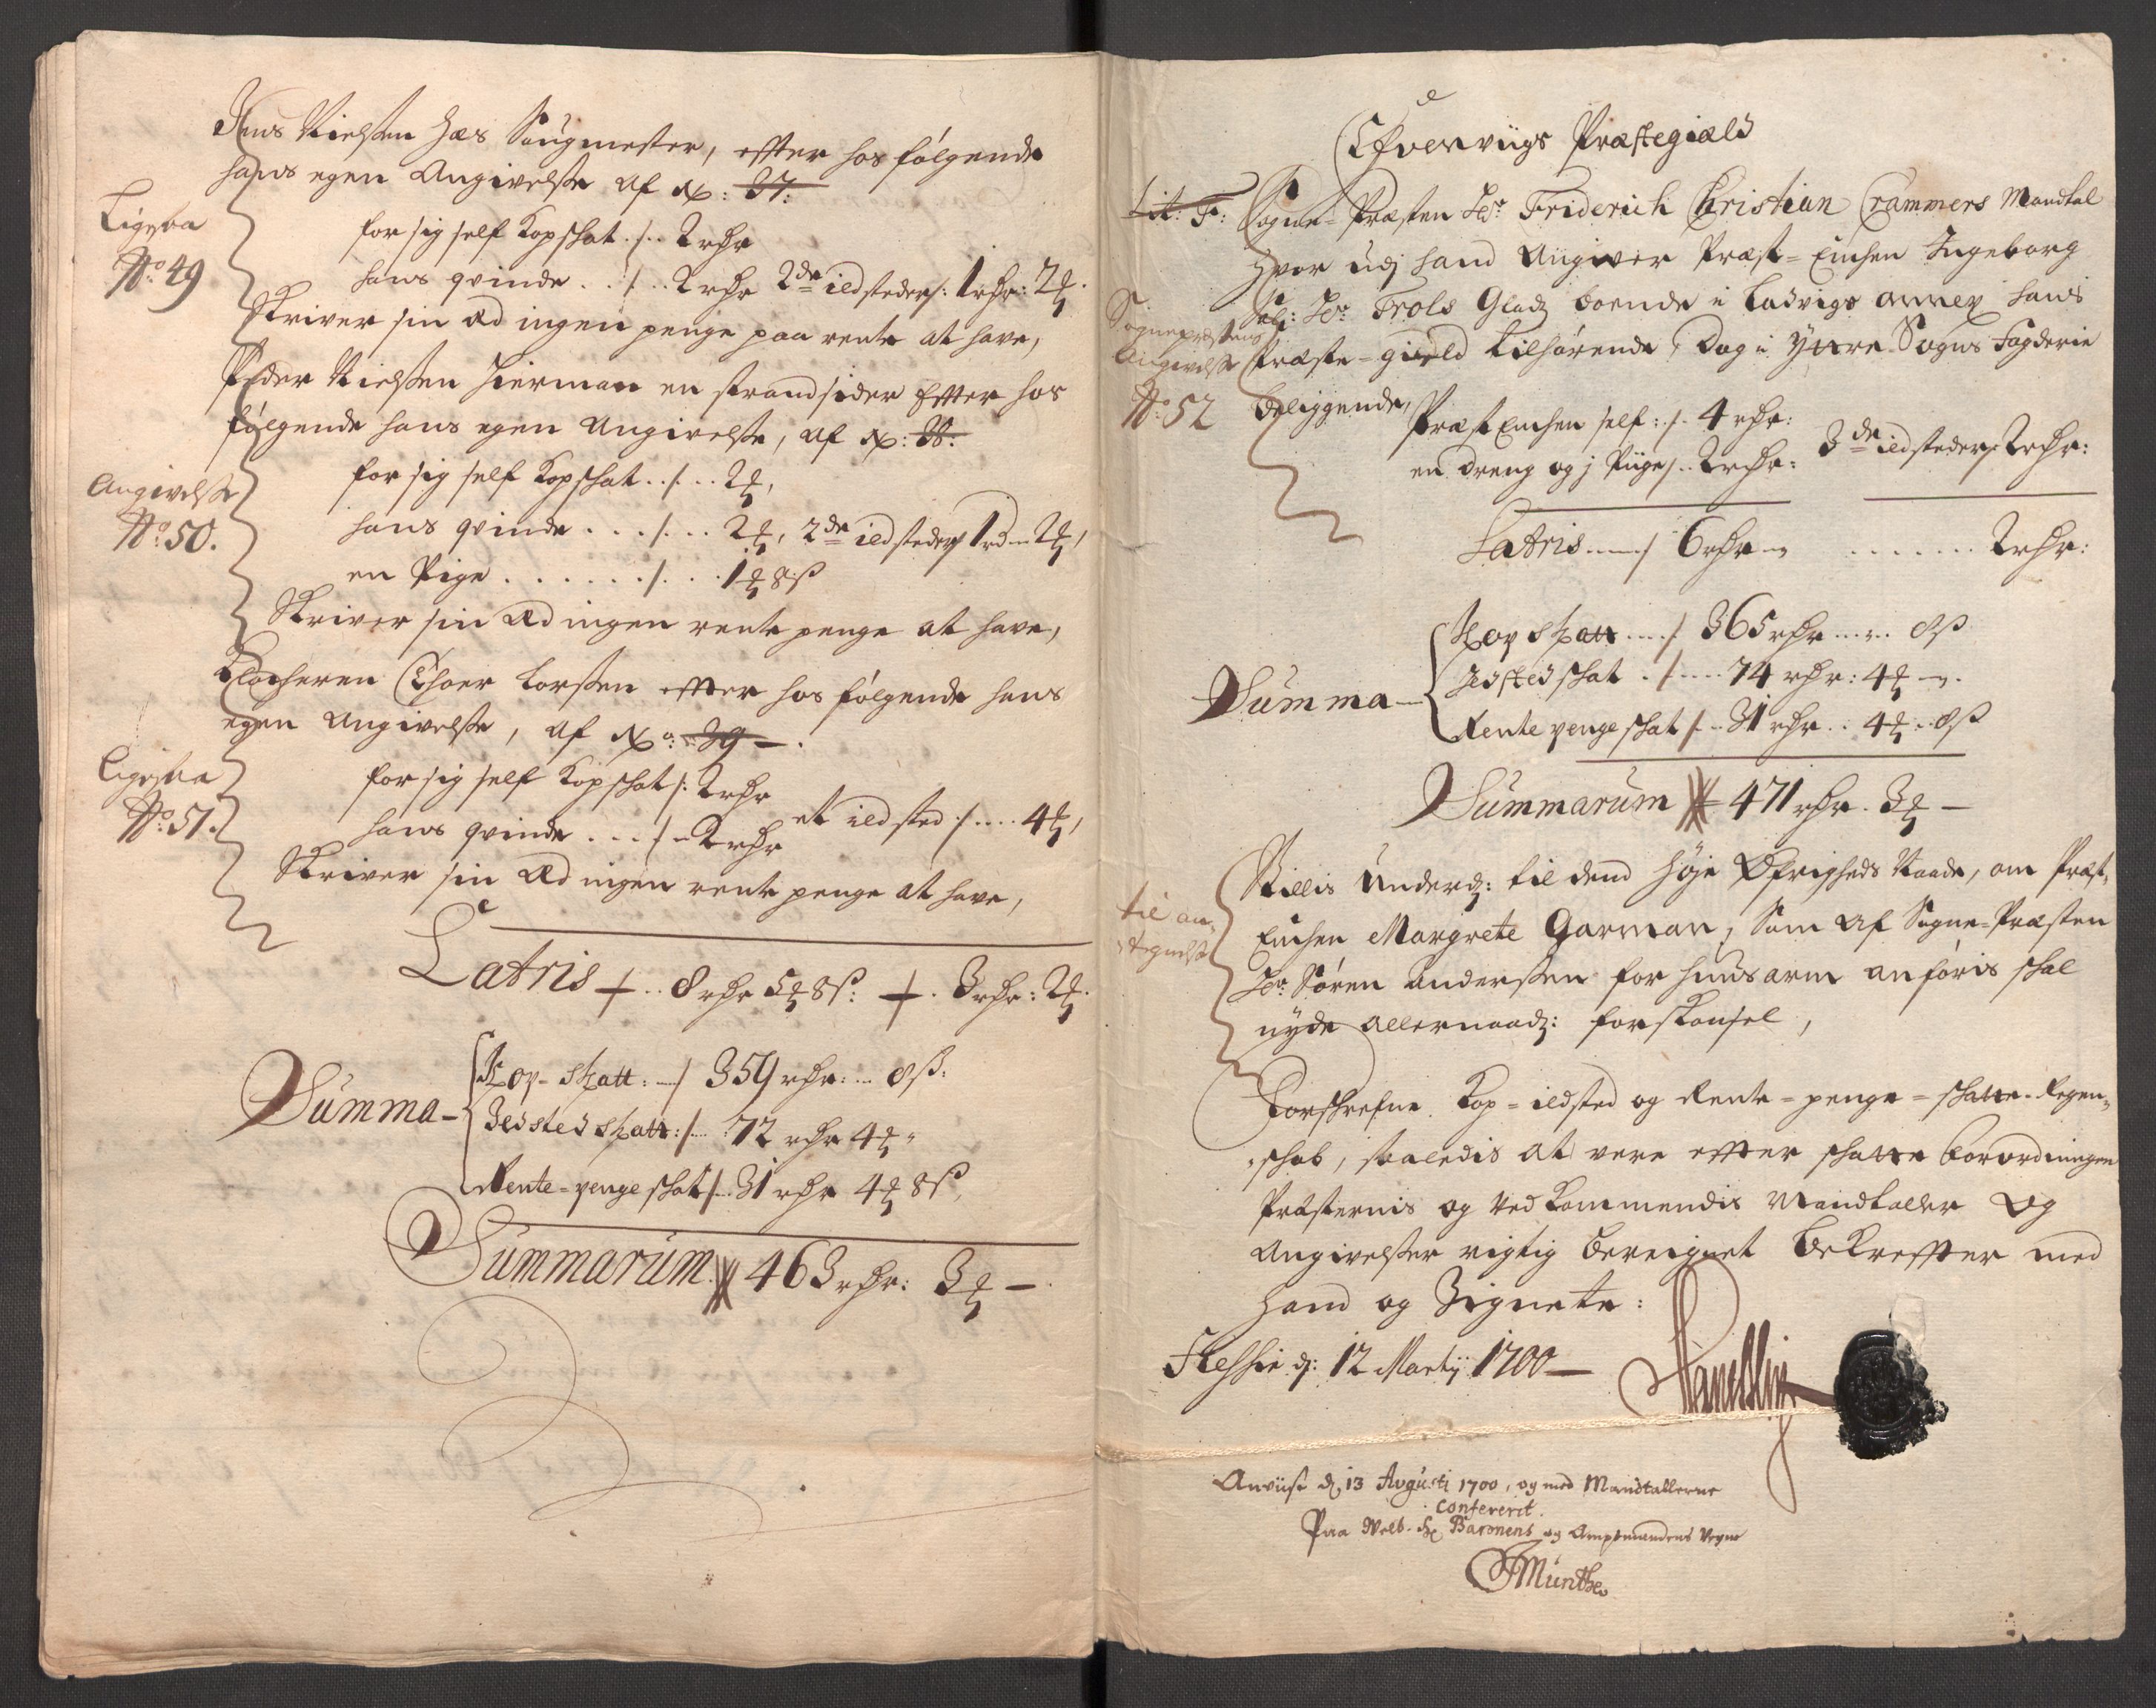 Jens Nielssen Hæs Saugmester, efter hos følgende
hans egen Angivelsse af No: 37:
Ligesaa
No: 49
for sig self Kopskat ./.. 2 rdr
hans qvinde ../.. 2 rdr 2de ildsteder /: 1 rdr: 2 ℔.
Skriver sin Æd ingen penge paa rente at have,
Peder Nielssen Hierman en strandsider Efter hos
følgende hans egen Angivelsse, af No: 38:
Angivelsse
No: 50.
for sig self Kopskat ../... 2 ℔,
hans qvinde .../... 2 ℔, 2de ildsteder / 1 rd - 2 ℔,
en Pige ....../... 1 ℔ 8 ß
Skriver sin Æd ingen rente penge at have,
Klocheren Lorssen efter hos følgende hans
egen Angivelsse, af No: 39 -.
Ligesaa
No: 51.
for sig self Kopskat /: 2 rdr
hans qvinde .../.. 2 rdr et ildsted /.... 4 ℔,
Skriver sin Æd ingen rente penge at have,
Latris .. 8 rdr 5 ℔ 8 ß: . 3 rdr: 2 ℔.
Summa -
Kop-skatt: --/ 359 rdr: .. 8 ß.
Ildsted skatt: /... 72 rdr 4 ℔ "
Rente-penge skat /.. 31 rdr 4 ℔ 8 ß,
Summarum 463 rdr: 3 ℔ -.
Præstegield
Lit: F: Sogne-Præsten Hr Friderich Christian Crammers Mandtal
Hvor udj hand Angiver Præst-Enchen Ingeborg
Sl: Hr: Trols Gladz boende i Ladvigs annex hans
Sognepræstens
Angivelsse
No: 52
Præste-gield tilhørende, dog i Yttre Sogns Fogderie
beliggende,
Præst Enchen self: /. 4 rdr:
en dreng og j Piige /.. 2 rdr: 3de ildsteder /: 2 rdr:
Latris ..../ 6 rdr - ....... 2 rdr:
Summa -
Kop skatt ..../ 365 rdr .... 8 ß
Ildsted skat ./.... 74 rdr: 4 ℔ -.
Rente penge skat /.. 31 rdr .. 4 ℔ .. 8 ß
Summarum 471 rdr. 3 ℔ -
til an-
tegnelsse
Stillis Underd: til dend Høje Øfrigheds Naade, om Præst-
Enchen Margrete Garman, Som af Sogne-Præsten
Hr: Søren Anderssen for huusarm anføris skal
nyde allernaad: forskaansel,
Forschrefne Kop- ildsted og Rente-penge-skatte-Regen-
schab, saaledis at vere efter skatte forordningen
Præsternis og Vedkommendis Mandtaller og
Angivelsser rigtig beregnet bekrefter med
Haand og Signete:
Flesche d: 12 Martij 1700 -
Anviist d. 13 Augusti 1700, og med Mandtallerne
Confererit.
Paa Welb. Hr Baronens og Amptmandens Vegne
Münthe